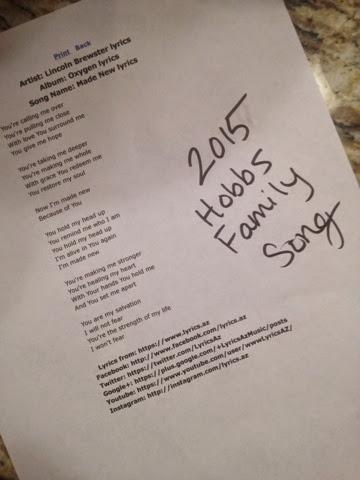 Print Back
Artist: Lincoln Brewster lyrics
Album: Oxygen lyrics
Song Name: Made New lyrics
You're calling me over
You're pulling me close
With love You surround me
You give me hope
You're taking me deeper
You're making me whole
With grace You redeem me
You restore my soul
Now I'm made new
Because of You
You hold my head up
You remind me who I am
You hold my head up
I'm alive in You again
I'm made new
You're making me stronger
You're healing my heart
With Your hands You hold me
And You set me apart
You are my salvation
I will not fear
You're the strength of my life
I won't fear
Lyrics from: https://www.lyrics.az
Facebook: http://www.facebook.com/lyrics.az
Twitter: https://twitter.com/LyricsAz
Google+: https://plus.google.com/+LyricsAzMusic/posts
Youtube: https://www.youtube.com/user/wwwLyricsAZ/
Instagram: http://instagram.com/lyrics.az
2015
Hobbs
Family
Song